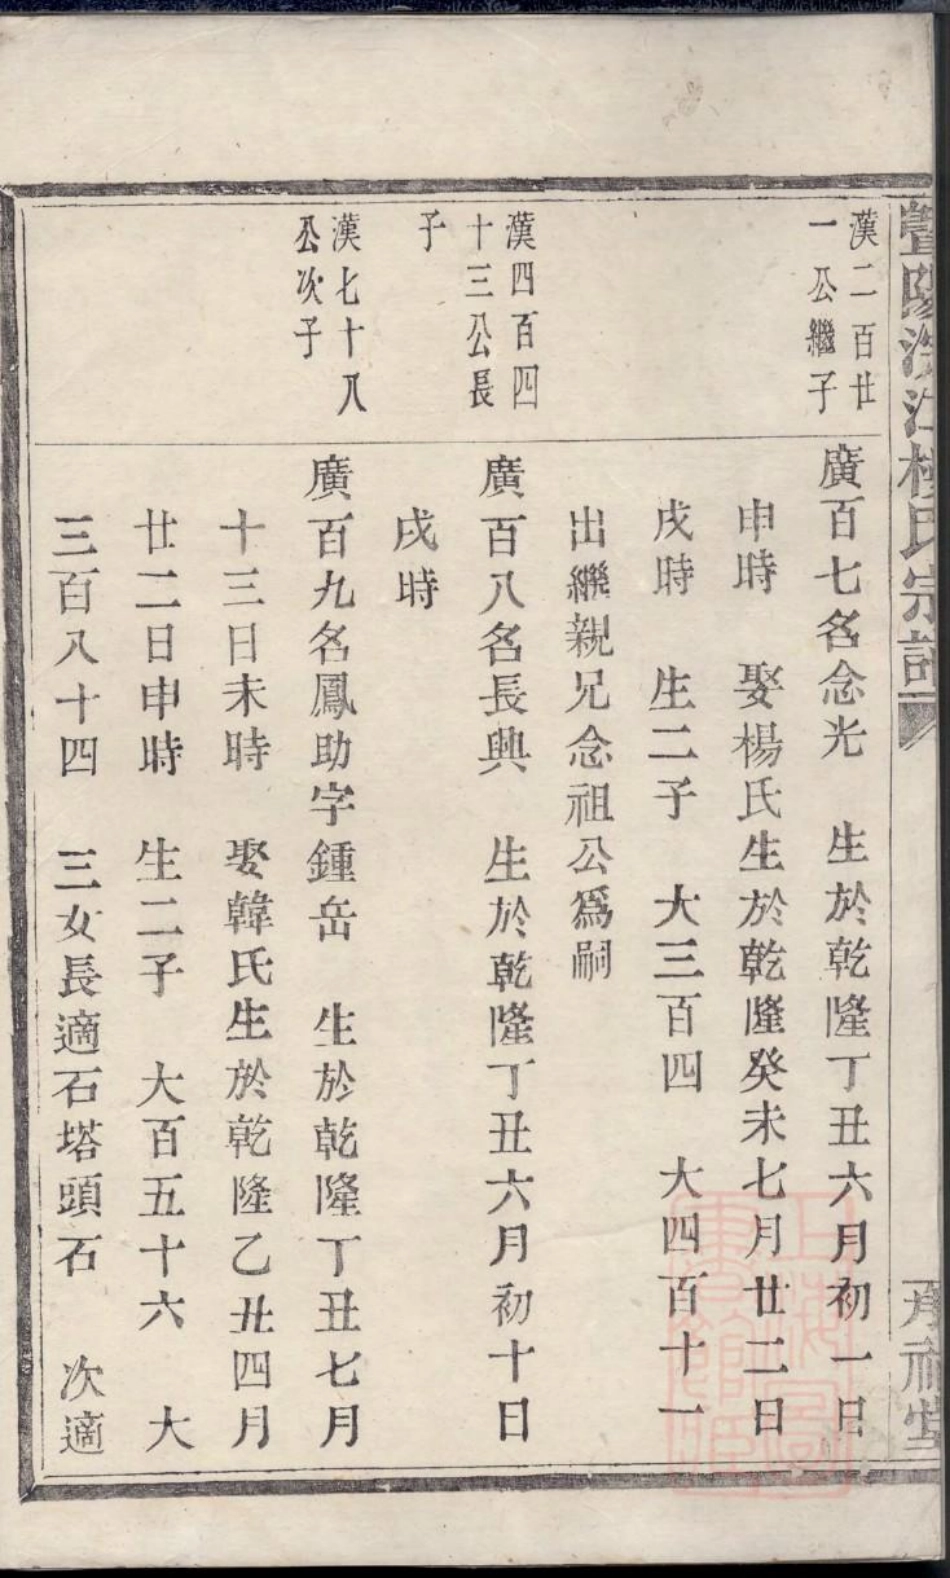 氏宗譜
漢二百廿
一公繼子
廣百七名念光 生於乾隆丁丑六月初一日
申時 娶楊氏生於乾隆癸未七月廿二日
戌時 生二子 大三百四 大四百十一
出繼親兄念祖公爲嗣
漢四百四
十三公長
子
廣百八名長興 生於乾隆丁丑六月初十日
戌時
漢七十八
公次子
廣百九名鳳助字鍾岳 生於乾隆丁丑七月
十三日未時 娶韓氏生於乾隆乙丑四月
廿二日申時 生二子 大百五十六 大
三百八十四 三女長適石塔頭石 次適